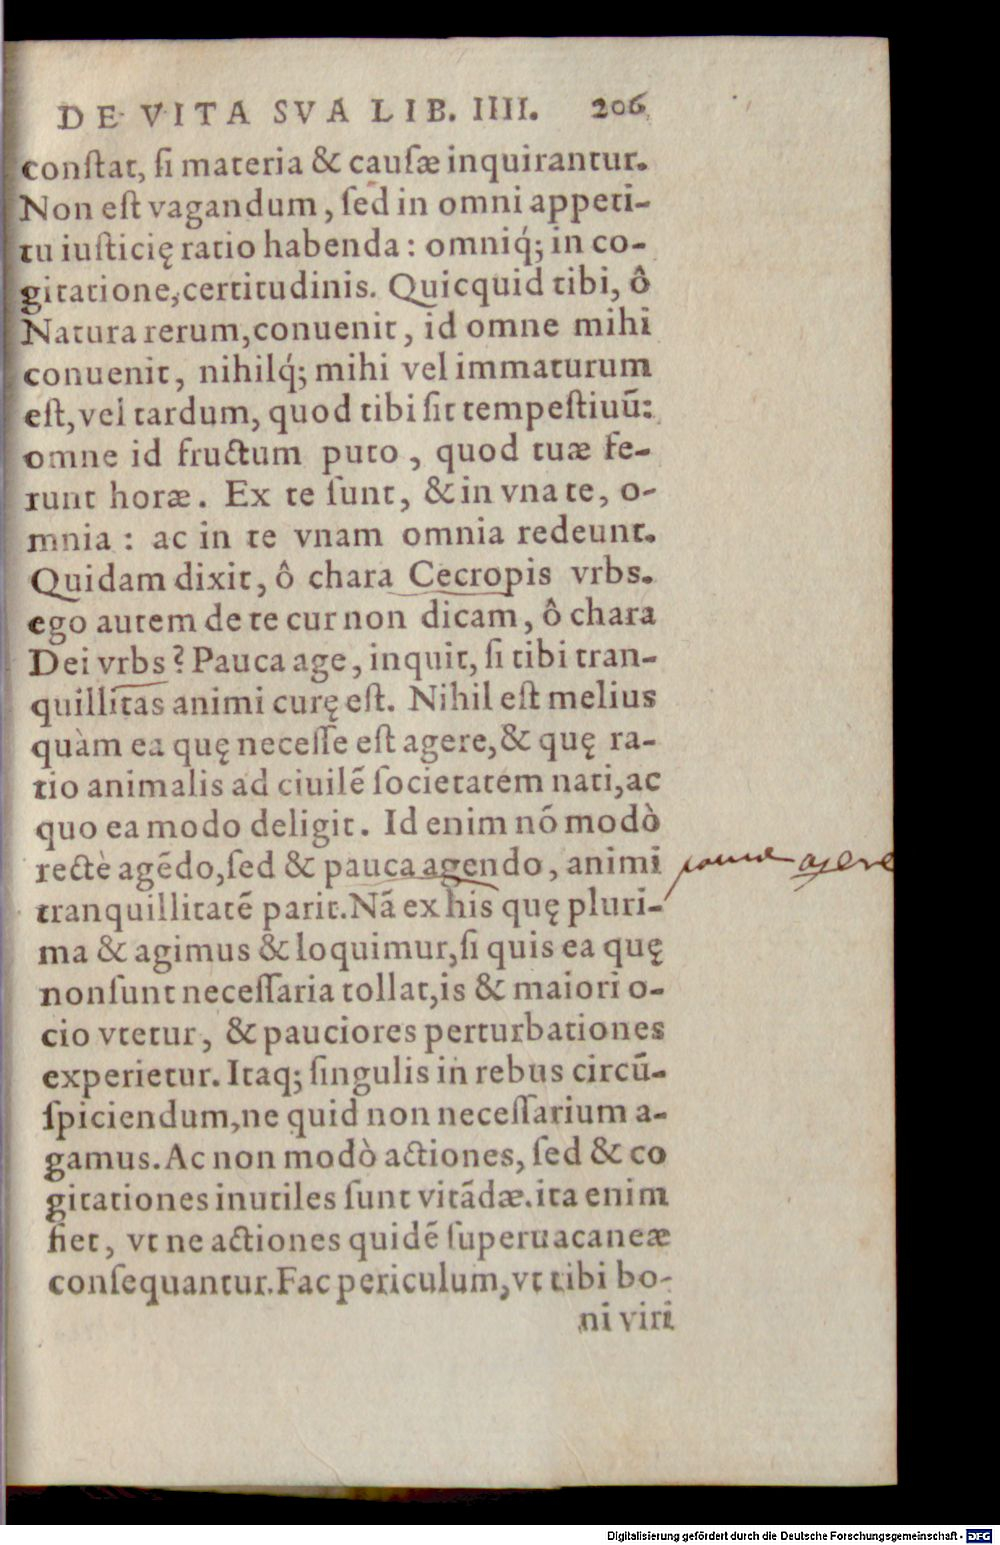 DE VITA SVA LIB. IIII. 206
conſtat, ſi materia & cauſæ inquirantur.
Non eſt vagandum, ſed in omni appeti-
tu iuſticię ratio habenda: omniq́; in co-
gitatione, certitudinis. Quicquid tibi, ô
Natura rerum, conuenit, id omne mihi
conuenit, nihilq́; mihi vel immaturum
eſt, vel tardum, quod tibi ſit tempeſtiuū:
omne id fructum puto, quod tuæ fe-
runt horæ. Ex te ſunt, & in vna te, o-
mnia: ac in te vnam omnia redeunt.
Quidam dixit, ô chara Cecropis vrbs.
ego autem de te cur non dicam, ô chara
Dei vrbs? Pauca age, inquit, ſi tibi tran-
quillitas animi curę eſt. Nihil eſt melius
quàm ea quę neceſſe eſt agere, & quę ra-
tio animalis ad ciuilē ſocietatem nati, ac
quo ea modo deligit. Id enim nō modò
rectè agēdo, ſed & pauca agendo, animi
pauca agere
tranquillitatē parit. Nā ex his quę pluri-
ma & agimus & loquimur, ſi quis ea quę
non ſunt neceſſaria tollat, is & maiori o-
cio vtetur, & pauciores perturbationes
experietur. Itaq; ſingulis in rebus circū-
ſpiciendum, ne quid non neceſſarium a-
gamus. Ac non modò actiones, ſed & co
gitationes inutiles ſunt vitādæ. ita enim
fiet, vt ne actiones quidē ſuperuacaneæ
conſequantur. Fac periculum, vt tibi bo-
ni viri
Digitalisierung gefördert durch die Deutsche Forschungsgemeinschaft - DFG